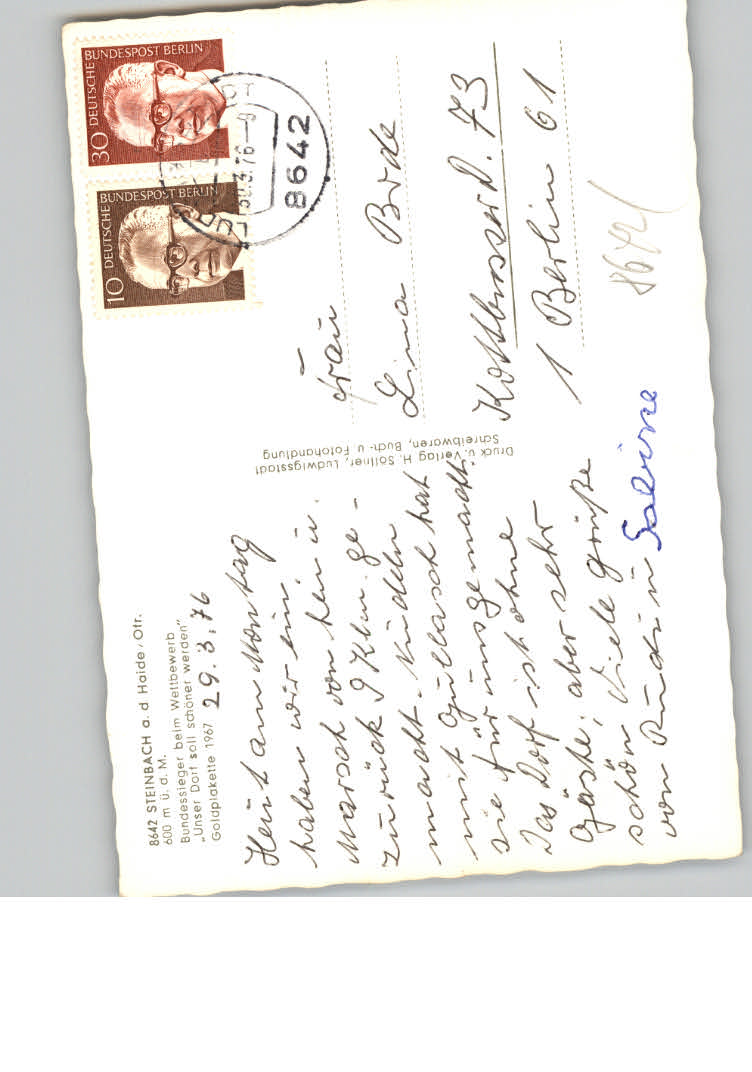 8642 STEINBACH a. d Haide / Ofr.
600 m ü. d. M.
Bundessieger beim Wettbewerb
„Unser Dorf soll schöner werden"
Goldplakette 1967
29.3.76
Heut am Montag
haben wir ein
Marsch von hin u.
zurück 9 Klm. ge-
macht. Nudeln
mit Gullasch hat
sie für uns gemacht.
Das Dorf ist ohne
Gäste, aber sehr
schön Viele grüße
von Rudi u Sabine
Druck u. Verlag H. Söllner, Ludwigsstadt
Schreibwaren, Buch- u Fotohandlung
30 DEUTSCHE BUNDESPOST BERLIN
10 DEUTSCHE BUNDESPOST BERLIN
30.3.76-9
8642
Frau
Lina Bode
Kottbusser D. 73
1 Berlin 61